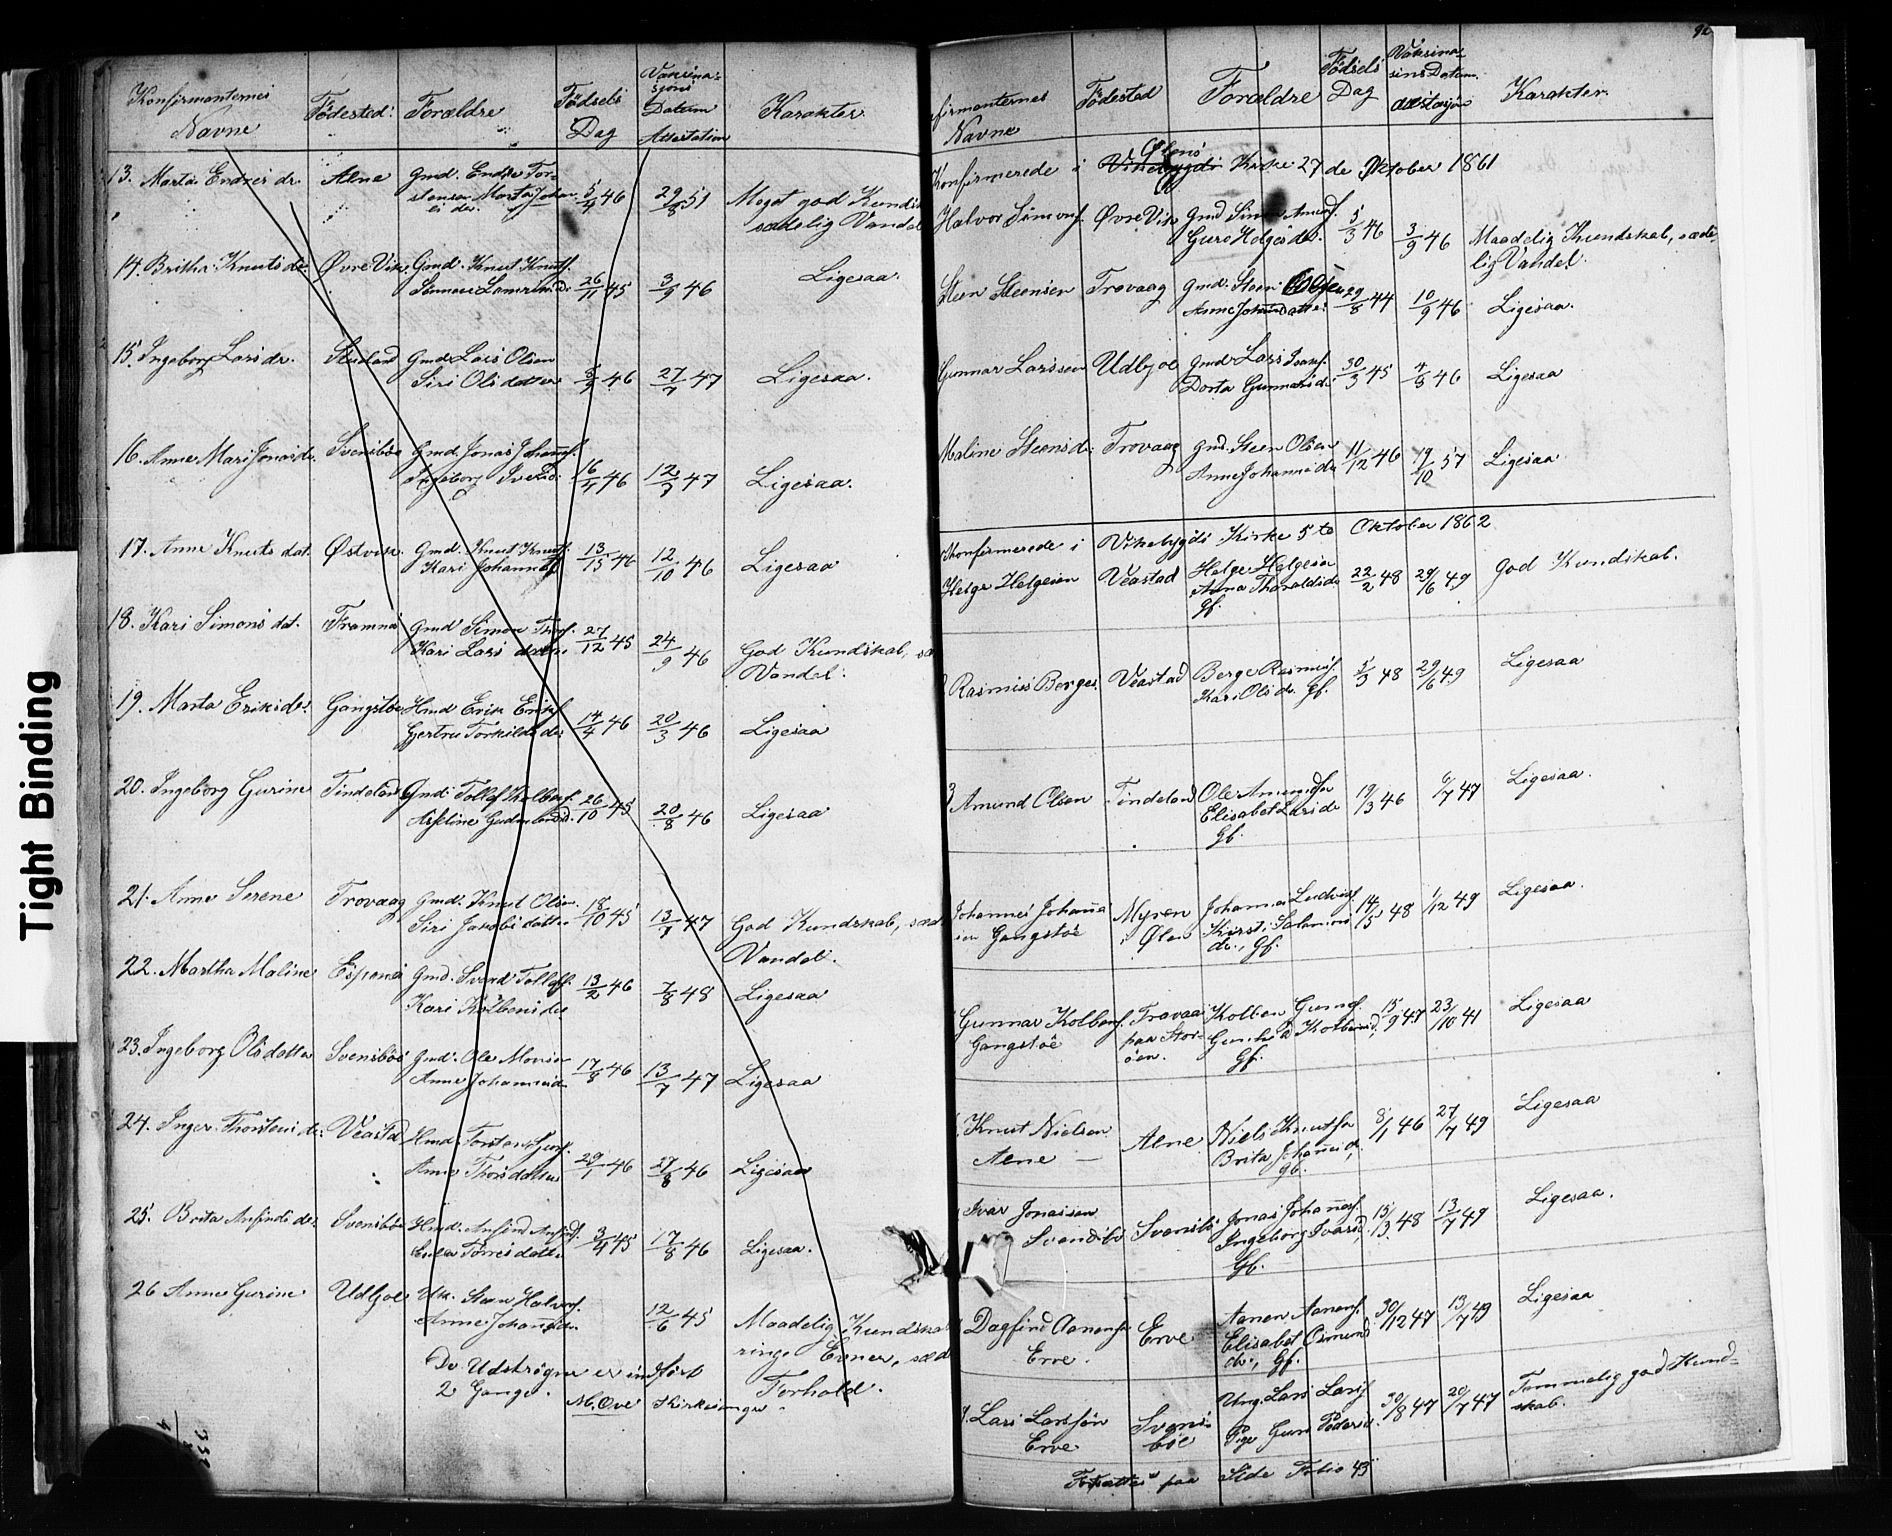 Tight Binding
Konfirmanternes Navne
Födested
Forældre
Födsels Dag
Vaksina-
sjons
Datum
Attestation
Karakter
13. Marta Endres dr. Alne Gmd. Endre Tor-
stensen Marta Johan-
es dr. 29/8 51 Meget god Kundsk
sædelig Vandel
14. Britha Knuts dr. Øvre Vik Gmd. Knut Knuts.
26/11 45 3/9 46 Ligesaa.
15. Ingeborg Lars dr. Gmd. Lars Olsen
Siri Ols datter 46 27/7 47 Ligesaa.
16. Anne Mari Jonas dr. Svensböe Gmd. Jonas Johans.
Ingeborg Ivers d. 16/4 46 12/7 47 Ligesaa.
17. Anne Knuts dat. Østvik Gmd. Knut Knuts.
Kari Johanns 46 12/10 46 Ligesaa
18. Kari Simons dat. Framnes Gmd Simon
Kari Lars datter 27/12 45 24/9 46 God Kundskab, sæ
Vandel.
19. Marta Eriks dr. Gangstøe Hmd Erik Eriks.
Gjertru Torkilds dr 14/4 46 20/3 46 Ligesaa
20. Ingeborg Gurine Tindeland Gmd. Tollef Kolbens.
26/10 45 20/8 46 Ligesaa
21. Anne Serene Trovaag Gmd. Knut Olsen
Siri Jakobs datter 18/10 45 13/7 47 God Kundskab, sæd
Vandel.
22. Martha Maline Espenes Gmd. Svend Tollefs.
Kari Kolbens dr 13/2 46 7/8 48 Ligesaa
23. Ingeborg Ols datter Svensböe Gmd. Ole Monsen
Anne Johannes d. 17/3 46 13/7 47 Ligesaa
24. Inger Thorstens dr. Veastad Hmd. Torsten
Anne Thors datter 29/1 46 27/8 46 Ligesaa
25. Brita Anfinds dr. Svensböe Hmd. Anfind Anfinds.
Torres datter 3/4 45 17/8 46 Ligesaa.
26 Anne Gurine Udbjoe Steen Halvors.
Anne Johannes dr. 12/6 45 Maadelig Kundska
ringe Evner, sæd
Forhold.
De Udströgne er indfört
2 Gange.
M. Ove Kirkesanger
firmanternes Navne
Födested
Forældre
Födsels Dag
Vaksina-
sins Datum
Karakter.
Konfirmerede i Vikebygds Ølens Kirke 27 de Oktober 1861
Halvor Simons. Øvre Vik Gmd Simon Amunds.
Guro Helges dr. 5/3 46 3/9 46 Maadelig Kundskab, sæde-
lig Vandel.
Steen Steensen Trovaag Gmd. Steen Olsen
Anne Johannes datter 29/8 44 10/9 46 Ligesaa.
Gunnar Larssen Udbjoe Gmd Lars Ivars.
Dorta Gunnars dr. 30/3 45 46 Ligesaa
Maline Steens dr. Trovaag Gmd. Steen Olsen
Anne Johannes dr 11/12 46 19/10 57 Ligesaa
Konfirmerede i Vikebygds Kirke 5 te Oktober 1862
Helge Helgesen Veastad Helge Helgesen
Anna Tharalds dr
Gf. 22/2 48 29/6 49 god Kundskab.
Rasmus Berges. Veastad Berge Rasmus.
Kari Ols dr. Gf. 5/3 48 29/6 49 Ligesaa
3 Amund Olsen Tindeland Ole Amundsen
Elisabet Lars dr
Gf. 19/3 46 6/7 47 Ligesaa.
Johannes Johanne-
sen Gangstöe Myren
i Ølen Johannes Ludvigs.
Kirsti Salamons
dr., Gf. 14/5 48 1/12 49 Ligesaa.
Gunnar Kolbens.
Gangstöe Trovaa
paa Stor-
öen. Kolben Gunnars.
Gunhild Kolbens d.
Gf. 15/9 47 23/10 41 Ligesaa
Knut Nielsen
Alne — Alne Niels Knutsen
Brita Johannes d.
Gf. 8/1 46 27/7 49 Ligesaa
Ivar Jonassen
Svendsbö Svensbö Jonas Johanes.
Ingeborg Ivars d.
Gf. 15/3 48 13/7 49 Ligesaa.
Dagfind Aanens.
Erve. Erve Aanen Aanens.
Elisabet Osmunds
dr., Gf. 30/12 47 13/7 49 Ligesaa
9. Lars Larssön
Erve Svens-
böe Ung. Lars Lars.
Pige Guri Peders d. 30/8 47 20/7 47 Temmelig god Kund-
skab.
Fortsættes paa Side Folio 43